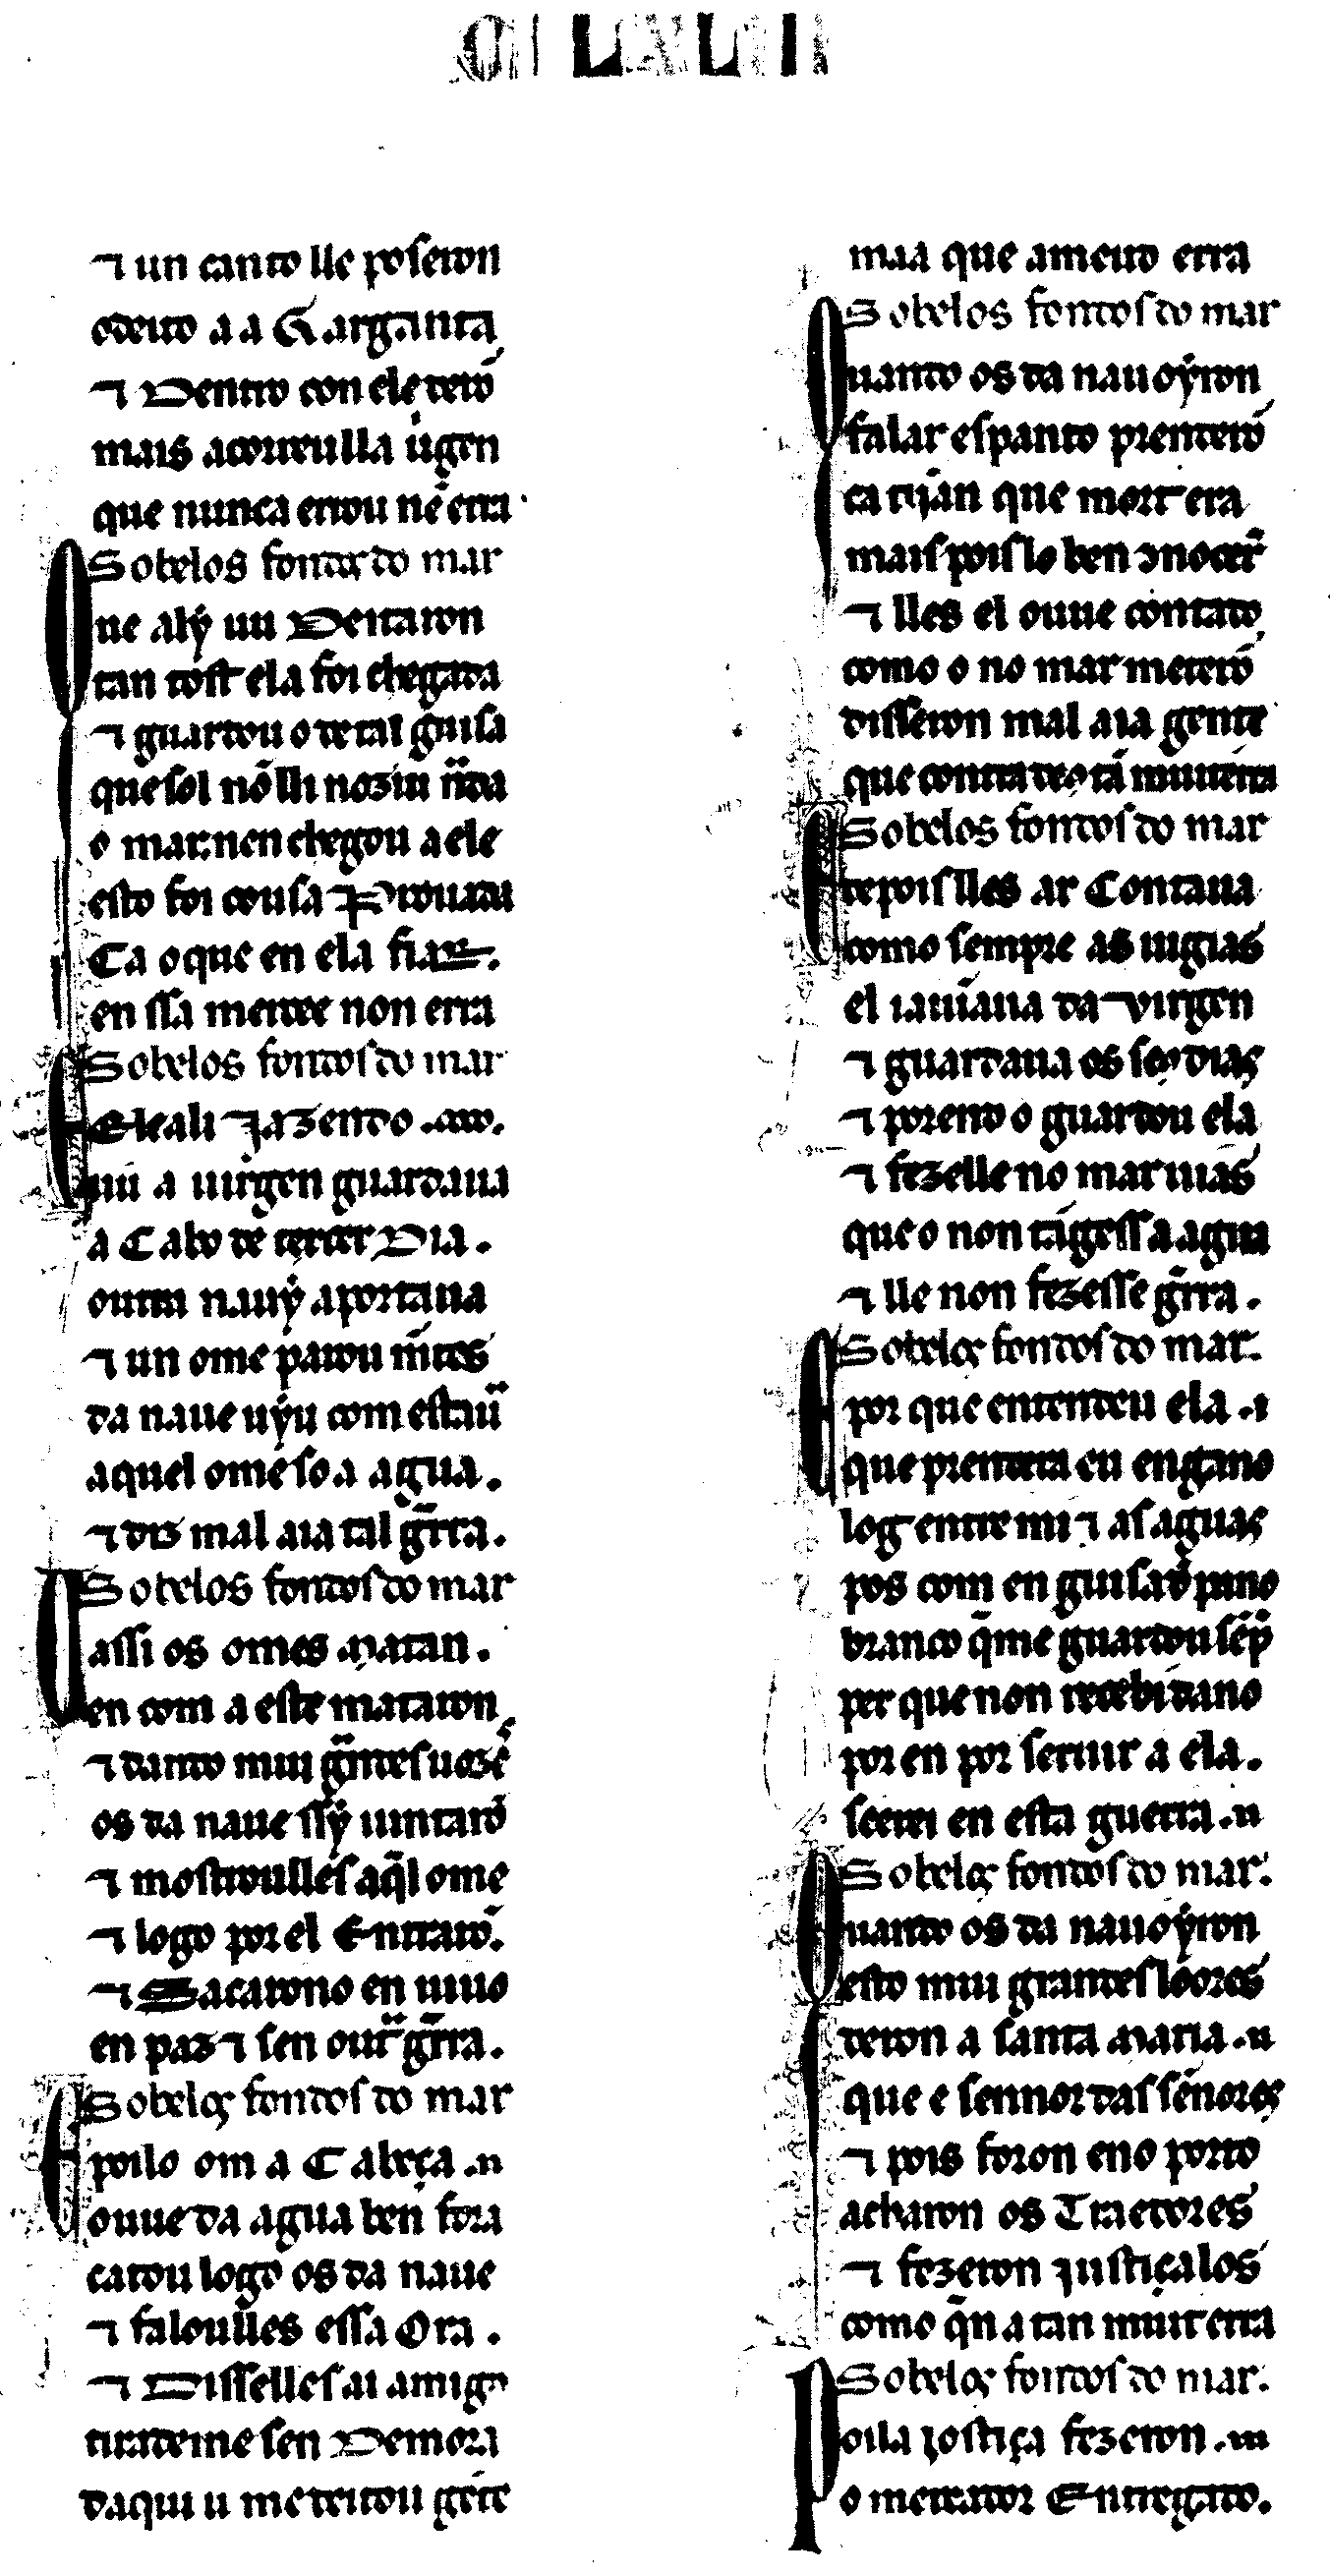 ⁊ un canto lle poseron
odeito a a Garganta
⁊ Dentro con ele derõ
mais acorreulla uigen
que nunca errou nẽ erra
Sobelos fondos do mar
Que alý uu Deitaron
tan tost ela foi chegada
⁊ guardou o de tal guisa
que sol nõ lli noziu nada
o mar. nen chegou a ele
esto foi cousa Prouada
Ca o que en ela fiar.
en ssa mercee non erra
Sobelos fondos do mar
E el ali Jazendo
a uirgen guardaua
a Cabo de tercer Dia.
outra nauý aportaua
⁊ un ome parou mẽtes
da naue uýu com estaua
aquel ome so a agua.
⁊ diz mal aia tal gerra.
Sobelos fondos do mar
Q assi os omes matan.
en com a este mataron
⁊ dando mui grandes uozes
os da naue ssý iuntarõ
⁊ mostroulles aq̃l ome
⁊ logo por el Entrarõ.
⁊ Sacarono en uiuo
en paz ⁊ sen outra gerra.
Sobelos fondos do mar
E poilo om a Cabeça
ouue da agua ben fora
catou logo os da naue
⁊ faloulles essa Ora.
⁊ Disselles ai amigos
tirademe sen Demora
daqui u me deitou gẽte
maa que ameude erra
Sobelos fondos do mar
Quando os da nau oýron
falar espanto prenderõ
ca tijan que mort era
mais pois lo ben ꝯnocerõ
⁊ lles el ouue contado
como o no mar meterõ
disseron mal aia gente
que contra deo tã muit erra
Sobelos fondos do mar
E depois lles ar Contaua
como sempre as uigias
el iaiũaua da Uirgen
⁊ guardaua os seos dias
⁊ porendo o guardou ela
⁊ fezelle no mar uias
que o non tãgess a agua
⁊ lle non fezesse gerra.
Sobelos fondos do mar.
E por que entendeu ela
que prendera eu engano
log entre mi ⁊ as aguas
pos com en guisa d pano
branco q̃ me guardou sẽp
per que non recebi dano
por en por seruir a ela.
seerei en esta guerra
Sobelos fondos do mar.
Quando os da nau oýron
esto mui grandes lóores
deron a santa Maria
que e sennor das sẽnores
⁊ pois foron eno porto
acharon os Traedores
⁊ fezeron Justiçalos
como q̃n a tan muit erra
Sobelos fondos do mar.
Poila jostiça fezeron
o mercador Entregado.